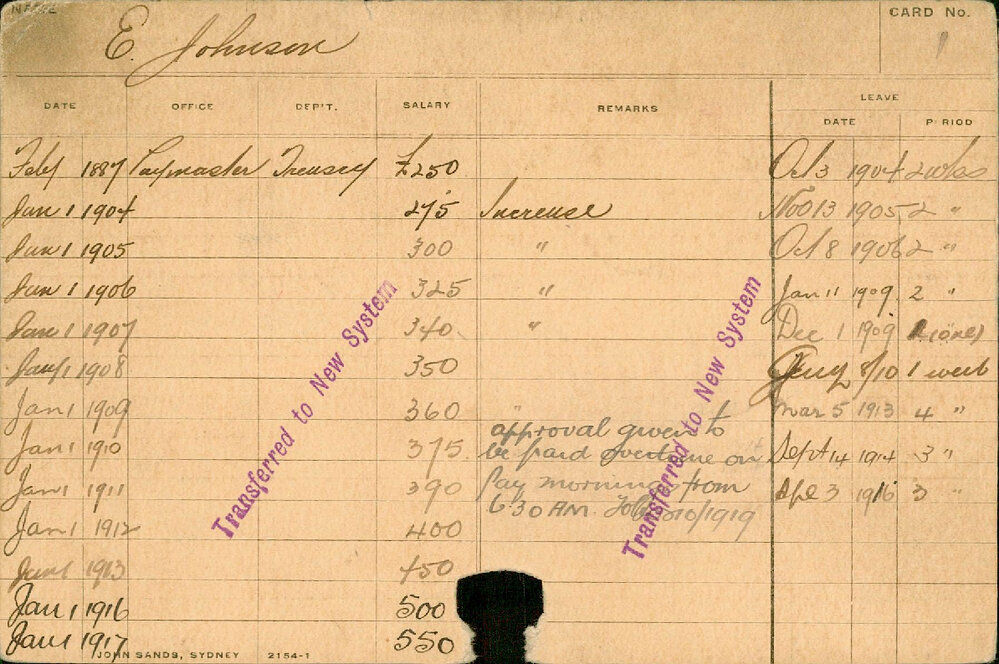 NAME
E. Johnson
CARD No.
1
DATE OFFICE DEP'T. SALARY REMARKS LEAVE
DATE PERIOD
Feby 1887 Paymaster Treasury £250 Oct 3 1904 2 wks
Jan 1 1904 275 Increase Nov 13 1905 2 "
Jan 1 1905 300 " Oct 8 1906 2 "
Jan 1 1906 325 " Jan 11 1909 2 "
Jan 1 1907 340 " Dec 1 1909 1 (one)
Jany 1 1908 350 8/10 1 week
Jan 1 1909 360 " Mar 5 1913 4 "
approval given to
Jan 1 1910 375 be paid overtime on Sept 14 1914 3 "
Jan 1 1911 390 Pay mornings from Apl 3 1916 3 "
6.30 AM. /10/1919
Jan 1 1912 400
Jan 1 1913 450
Jan 1 1916 500
Jan 1 1917 550
Transferred to New System
Transferred to New System
JOHN SANDS, SYDNEY 2154-1